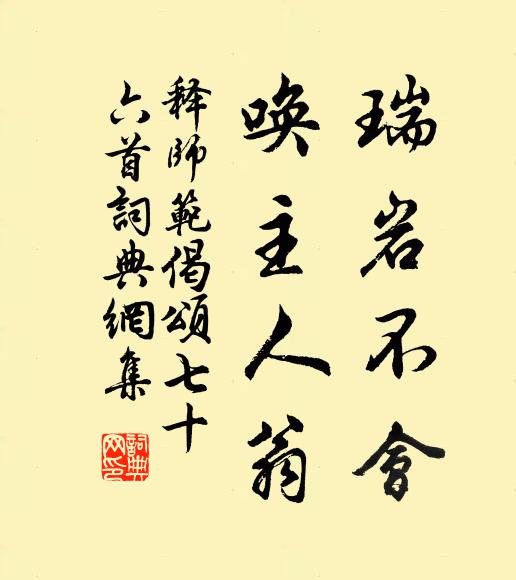 瑞岩不會
唤主人翁
释師範偈頌七十
六首詞典網集
詞典網印